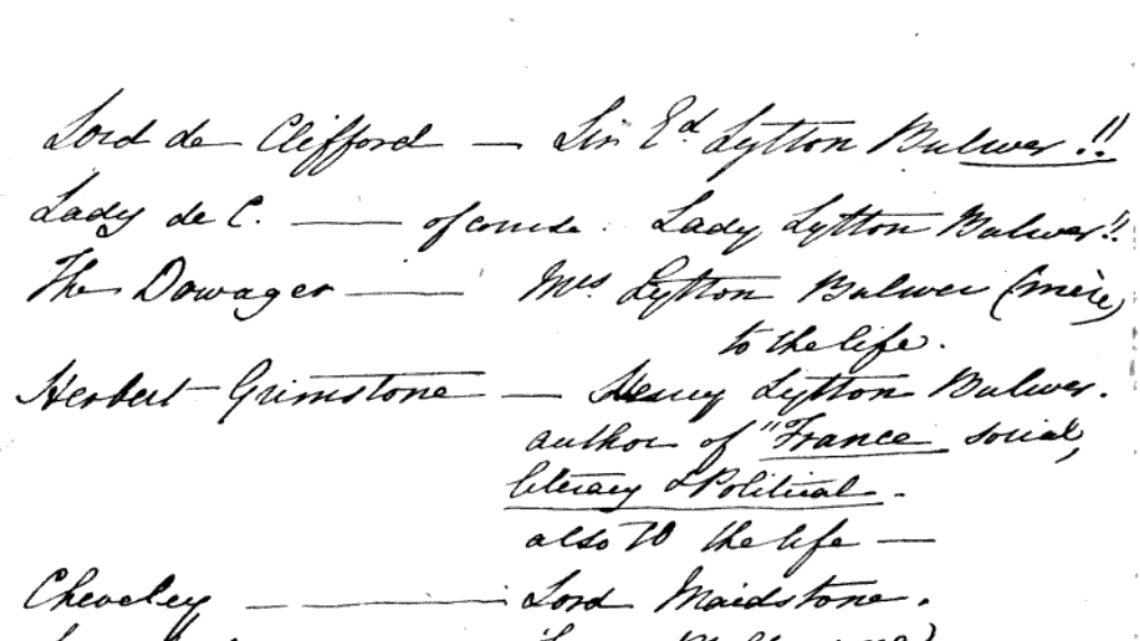 Lord de Clifford — Sir Ed Lytton Bulwer!!
Lady de C. — of course. Lady Lytton Bulwer!!
The Dowager — Mrs Lytton Bulwer (mère)
to the life.
Herbert Grimstone — Henry Lytton Bulwer.
author of "France social,
literary & Political.
also to the life —
Cheveley — Lord Maidstone.